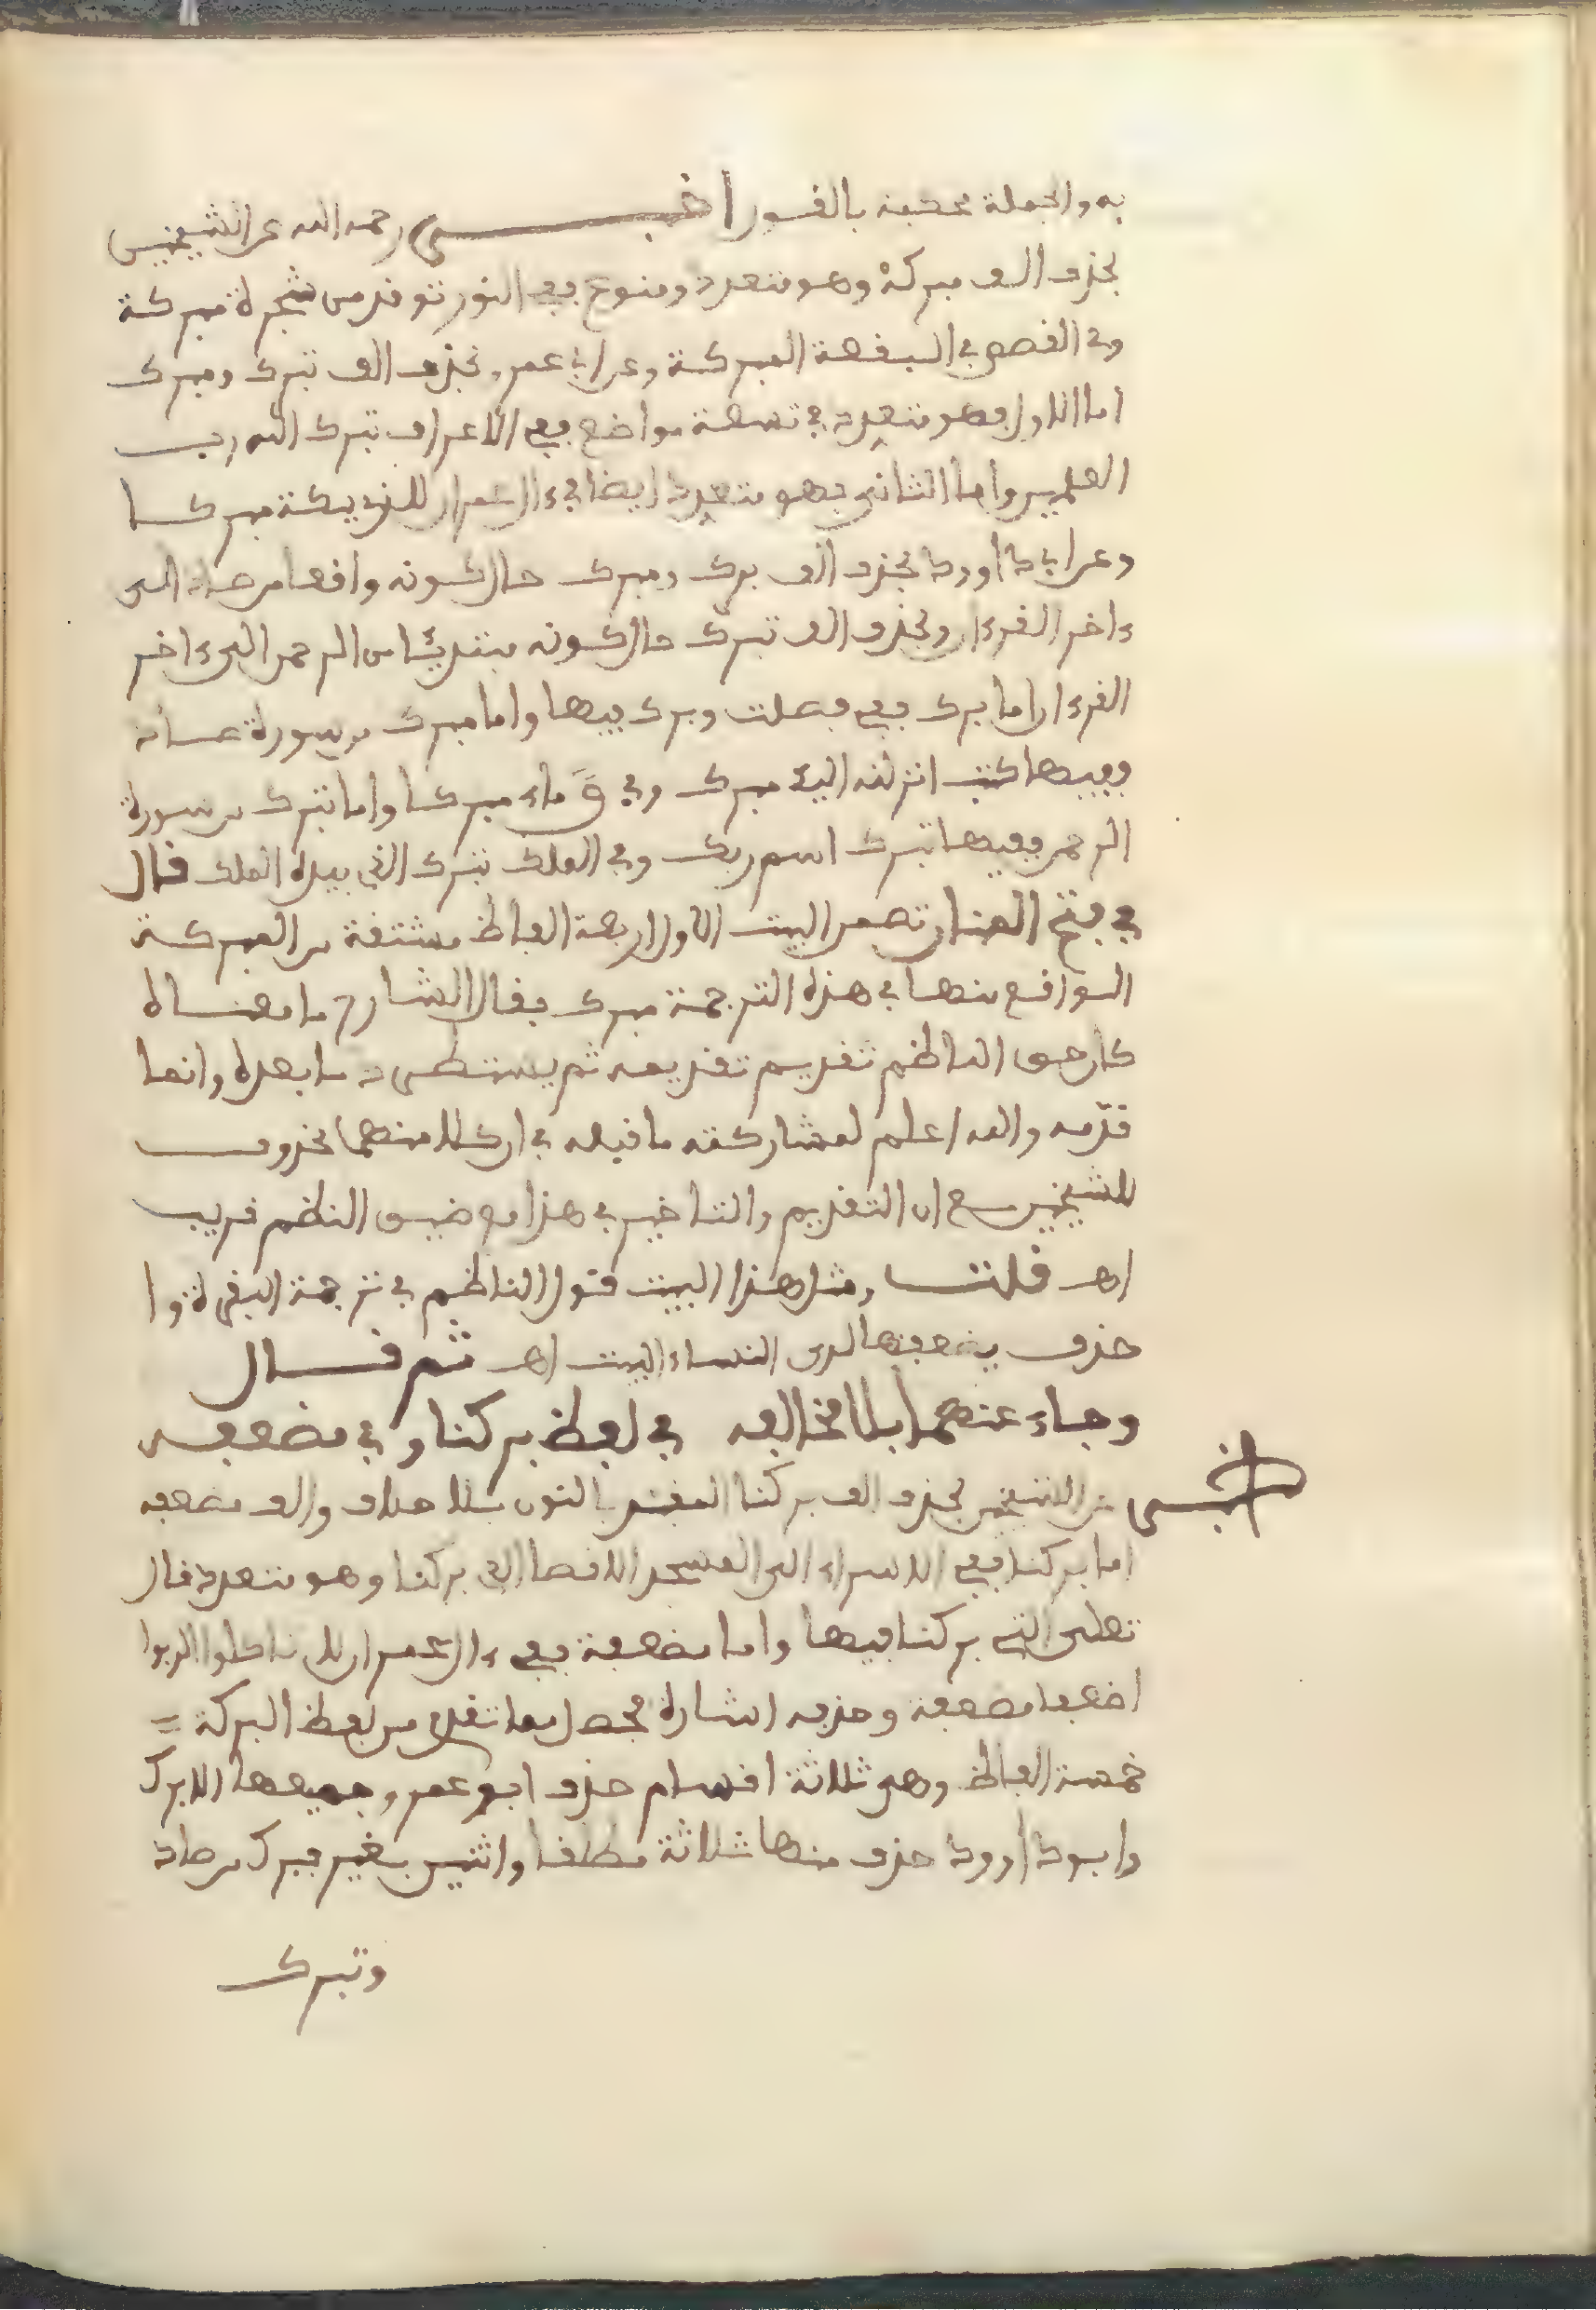 به والجملة محكية بالقول اخبر رحمه الله عن الشيخين
بحذف الف مبركة وهو متعدد ومنوع ففي النور توقد من شجرة مبركة
وفي القصص في البقعة المبركة وعن ابي عمرو بحذف الف تبرك ومبرك
اما الاول فهو متعدد في تسعة مواضع ففي الاعراف تبرك الله رب
العلمين واما الثاني فهو متعدد ايضا في ءال عمران للذي ببكة مبركا
وعن ابي داوود بحذف الف برك ومبرك حال كونه واقعا من صاد الى
ءاخر القرءان وبحذف الف تبرك حال كونه مبتدئا من الرحمن الى ءاخر
القرءان اما برك ففي فصلت وبرك فيها واما مبرك من سورة صاد
ففيها كتب انزلنه اليك مبرك وفي ق ماء مبركا واما تبرك من سورة
الرحمن ففيها تبرك اسم ربك وفي الملك تبرك الذي بيده الملك قال
في فتح المنان تضمن البيت الاول اربعة الفاظ مشتقة من البركة
الواقع منها في هذه الترجمة مبرك فقال الشارح ما معناه
كان حق الناظم تقديم تقديمه ثم يستطرد ما بعده وانما
قدمه والله اعلم لمشاركته ما قبله في ان كلا منهما محذوف
للشيخين مع ان التقديم والتاخير في هذا مع ضيق النظم قريب
اهـ قلت ومثل هذا البيت قول الناظم في ترجمة البقرة وا
حذف يضعفها لدى النساء البيت اهـ ثم قال
وجاء عنهما بلا مخالفه في لفظ بركنا وفي مضعفه
اخبر عن الشيخين بحذف الف بركنا المقترن بالنون بلا خلاف والف مضعفه
اما بركنا ففي الاسراء الى المسجد الاقصا الذي بركنا وهو متعدد قال
تعلى التي بركنا فيها واما مضعفة ففي ءال عمران لا تاكلوا الربوا
اضعفا مضعفة وحذفه اشارة محصل ما تقدم من لفظ البركة =
خمسة الفاظ وهي ثلاثة اقسام حذف ابو عمرو جميعها الا برك
وابو داوود حذف منها ثلاثة مطلقا واثنين بغير مبرك من صاد
وتبرك